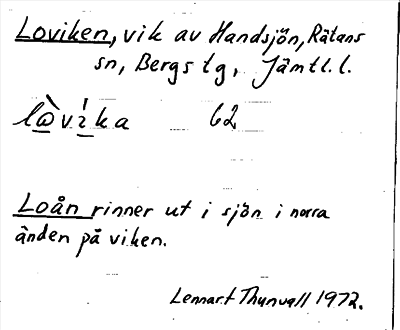 Loviken, vik av Handsjön, Rätans
sn, Bergs tg, Jämtl. l.
lo̠̊̀vi̠̍ka 62
Loån rinner ut i sjön i norra
änden på viken.
Lennart Thunvall 1972.